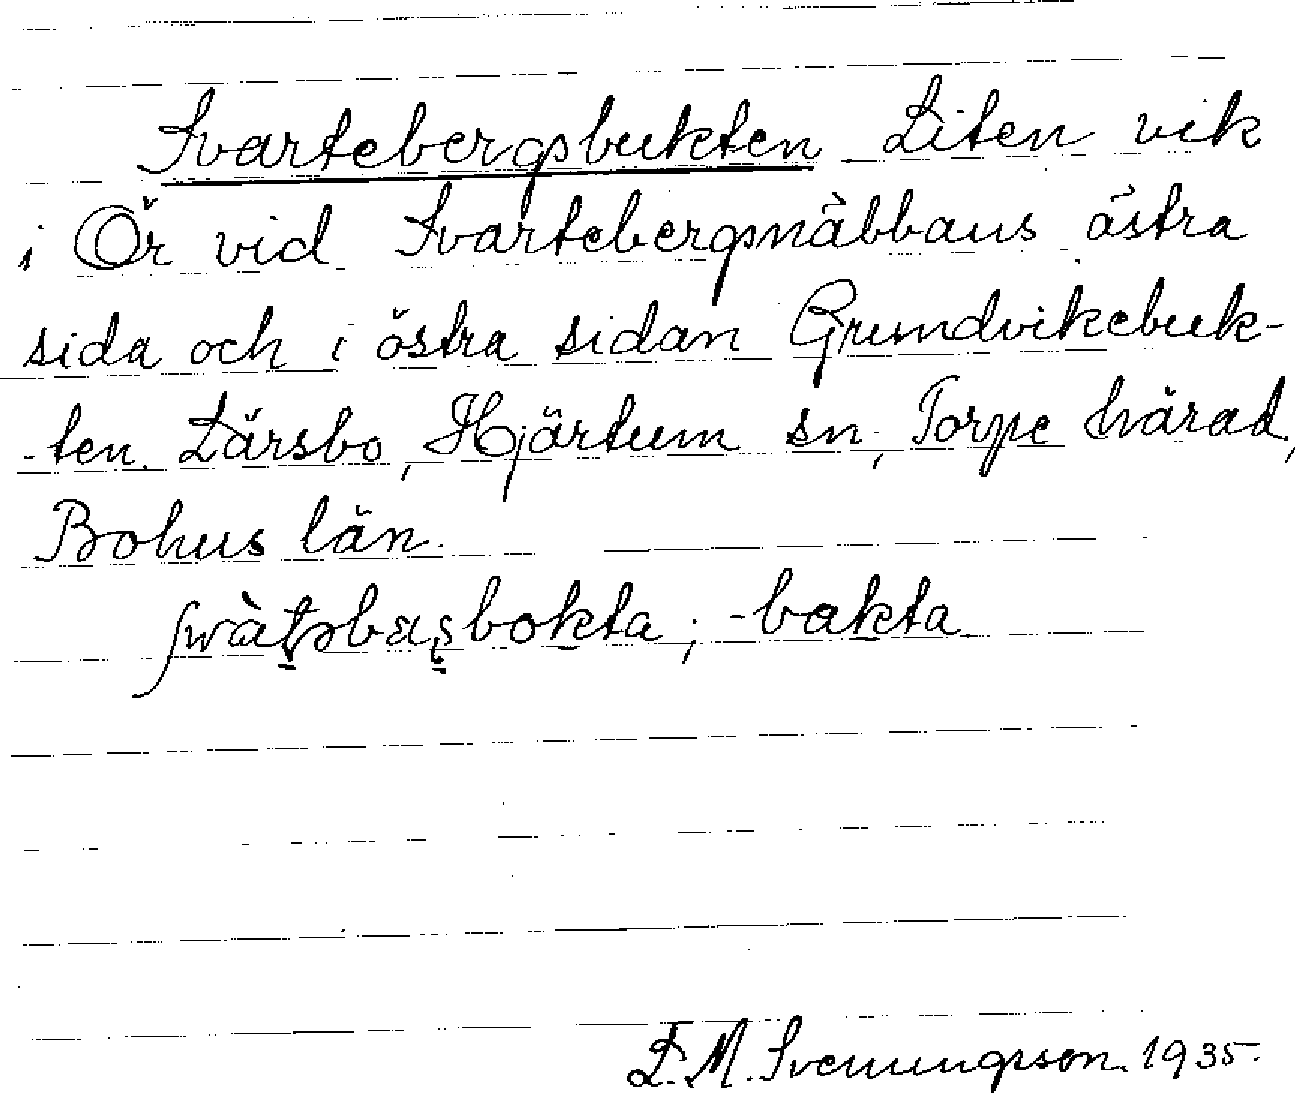 Svartebergsbukten Liten vik
i Ör vid Svartebergsnäbbans östra
sida och i östra sidan Grundvikebuk-
-ten. Lärsbo, Hjärtum sn, Torpe härad,
Bohus län.
-bakta
L. M. Svenungsson. 1935.